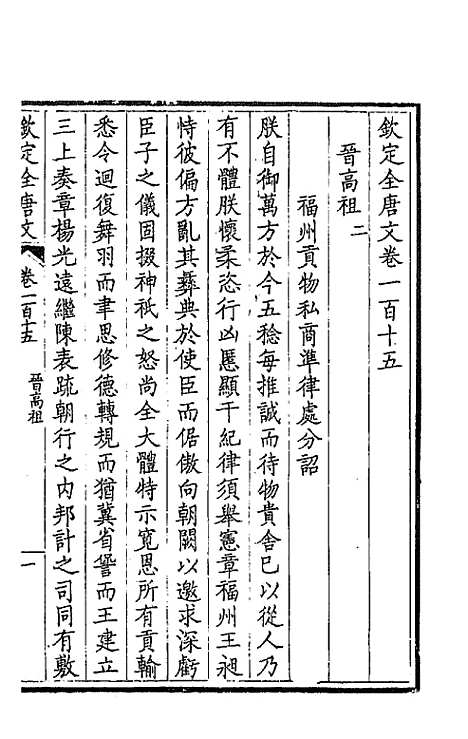 欽定全唐文卷一百十五
晉高祖二
福州貢物私商準律處分詔
朕自御萬方於今五稔每推誠而待物貴舍已以從人乃
有不體朕懷柔恣行凶慝顯干紀律須舉憲章福州王昶
恃彼偏方亂其彝典於使臣而倨傲向朝闕以邀求深虧
臣子之儀固掇神祇之怒尚全大體特示寬恩所有貢輸
悉令迴復舞羽而聿思修德轉規而猶冀省諐而王建立
三上奏章楊光遠繼陳表疏朝行之內邦計之司同有敷
欽定全唐文
卷一百十五
晉高祖
一